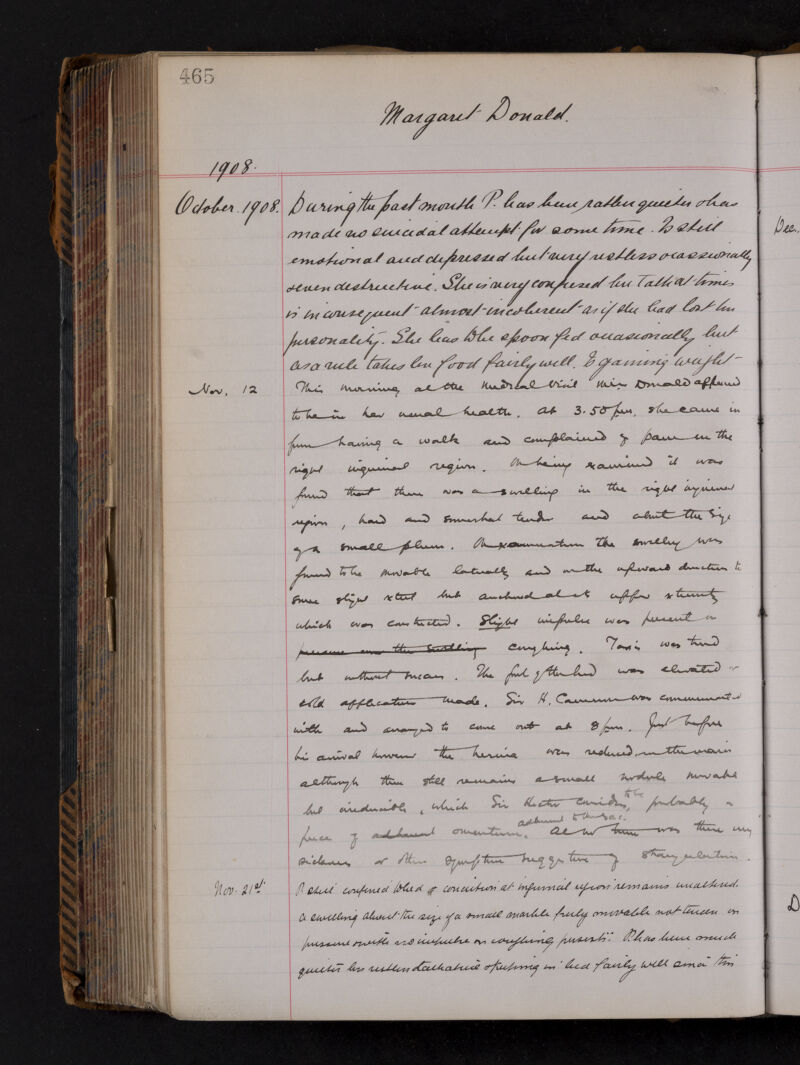 465
Margaret Donald.
1908.
October. 1908. During the past month P. has been rather quieter & has
made no suicidal attempt for some time. Is still
emotional and depressed but very restless & occassionally
& even destructive. She is very confused her talk at times
is inconsequent almost incoherent as if she had lost her
personality. She has to be spoon fed occasionally but
as a rule takes her food fairly well. Is gaining weight
Nov. 12 This morning at the medical visit Miss Donald appeared
to be in her usual health. At 3.50 p.m. she came in
from having a walk and complained of pain in the
right inguinal region. On being examined it was
found that there was a swelling in the right inguinal
region, hard and somewhat tender and about the size
of a small plum. On examination the swelling was
found to be movable laterally and in the upward direction to
some slight extent but anchored at its upper extremity
which was constricted. Slight impulse was present on
pressure over the swelling coughing. Taxis was tried
but without success. The foot of the bed was elevated &
cold applications made. Sir H. Cameron was communicated
with and arranged to come out at 8 p.m. Just before
his arrival however the hernia was reduced in the main
although there still remains a small nodule movable
but irreducible, which Sir Hector considers to be probably a
piece of adherent omentum adherent to the sac. At no time was there any
sickness or other symptom suggestive of strangulation.
Nov. 21st. P. still confined to bed & condition at inguinal region remains unaltered.
a swelling about the size of a small marble freely movable not tender on
pressure & with no impulse on coughing persists. P. has been much
quieter less restless & talkative & keeping in bed fairly well since this
Dec.
D